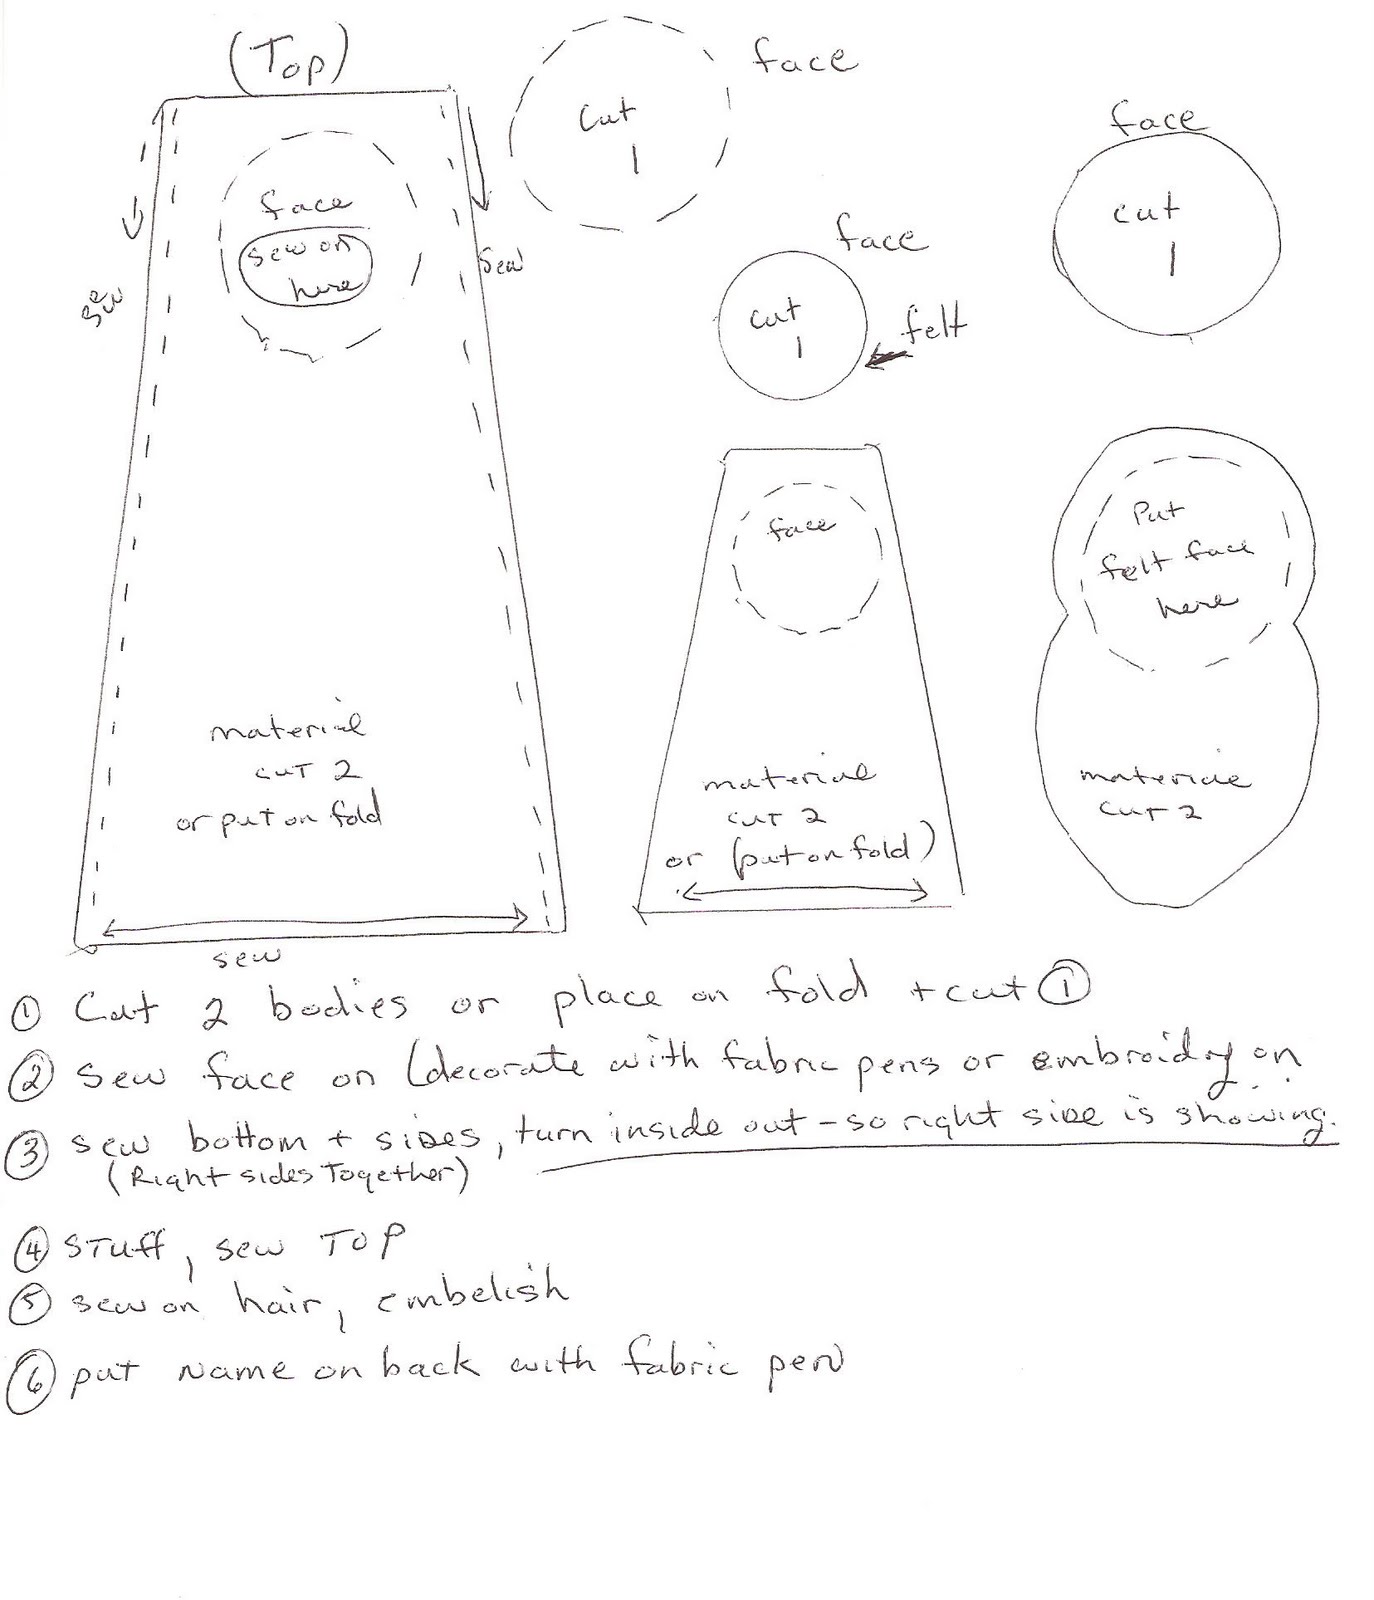 (Top)
face
cut
1
face
cut
1
face
sew on
here
sew
sew
face
cut
1
felt
face
Put
felt face
here
material
cut 2
or put on fold
material
cut 2
or (put on fold)
material
cut 2
sew
① Cut 2 bodies or place on fold + cut ①
② Sew face on (decorate with fabric pens or embroidry on
③ sew bottom + sides, turn inside out - so right side is showing.
(Right sides Together)
④ STuff, sew TOP
⑤ sew on hair, embelish
⑥ put Name on back with fabric pen